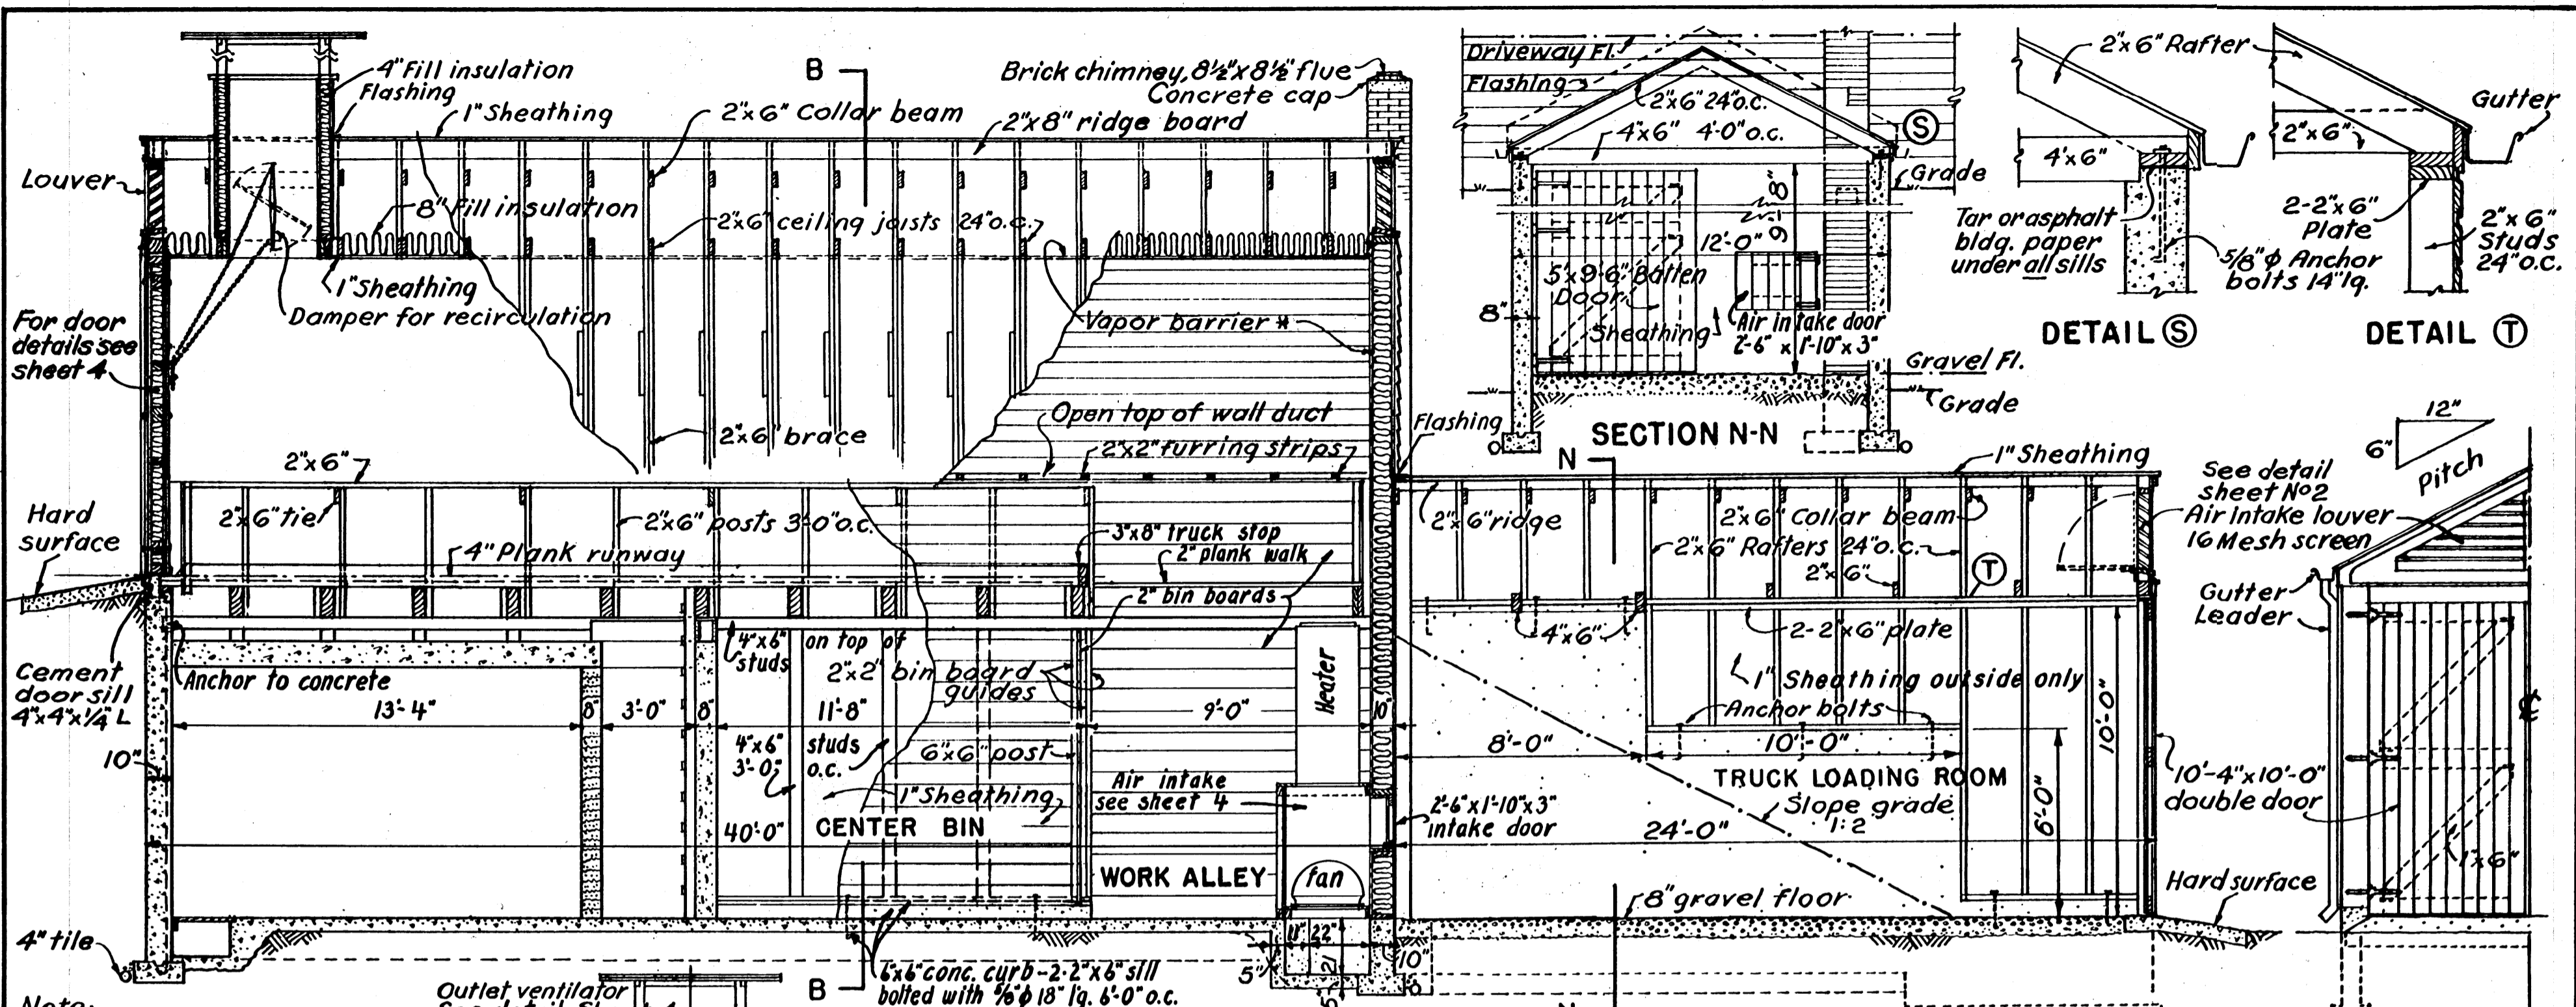 4" Fill insulation
Flashing
1" Sheathing
B
2"x6" Collar beam
Brick chimney, 8½"x8½" flue
Concrete cap
2"x8" ridge board
Louver
8" Fill insulation
2"x6" ceiling joists 24" o.c.
1" Sheathing
Damper for recirculation
Vapor barrier *
For door
details see
sheet 4
Open top of wall duct
2"x6" brace
2"x2" furring strips
Flashing
2"x6"
Hard
surface
2"x6" tie
2"x6" posts 3'-0" o.c.
4" Plank runway
3"x8" truck stop
2" plank walk
2" bin boards
Cement
door sill
4"x4"x¼" L
Anchor to concrete
4"x6" on top of
studs
2"x2" bin board
guides
13'-4"
8"
3'-0"
8"
11'-8"
9'-0"
10"
Heater
10"
4"x6" studs
3'-0" o.c.
6"x6" post
1" Sheathing
Air intake
see sheet 4
40'-0"
CENTER BIN
WORK ALLEY
fan
4" tile
11"
22"
21"
5"
5"
10"
6"x6" conc. curb-2-2"x6" sill
bolted with ⅝"ϕ 18" lg. 6'-0" o.c.
B
Outlet ventilator
Note:
Driveway Fl.
Flashing
2"x6" 24" o.c.
4"x6" 4'-0" o.c.
S
Grade
9'-8"
12'-0"
5'x9'-6" Batten
Door
8"
Sheathing
Air intake door
2'-6" x 1'-10" x 3"
Gravel Fl.
Grade
SECTION N-N
2"x6" Rafter
4"x6"
Tar or asphalt
bldg. paper
under all sills
⅝"ϕ Anchor
bolts 14" lg.
DETAIL S
Gutter
2"x6"
2-2"x6"
Plate
2"x6"
Studs
24" o.c.
DETAIL T
N
1" Sheathing
2"x6" ridge
2"x6" Collar beam
2"x6" Rafters 24" o.c.
2"x6"
T
4"x6"
2-2"x6" plate
1" Sheathing outside only
Anchor bolts
8'-0"
10'-0"
10'-0"
TRUCK LOADING ROOM
Slope grade
1:2
2'-6"x1'-10"x3"
intake door
24'-0"
6'-0"
8" gravel floor
12"
6"
Pitch
See detail
sheet No 2
Air intake louver
16 Mesh screen
Gutter
Leader
10'-4"x10'-0"
double door
1"x6"
Hard surface